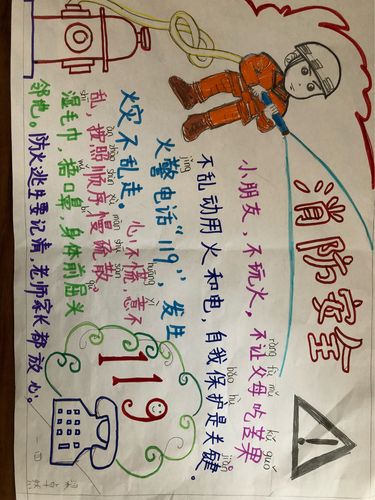 消防安全
ràng fù mǔ kǔ guǒ
小朋友，不玩火，不让父母吃苦果。
bǎo hù jiàn
不乱动用火和电，自我保护是关键。
jǐng
火警电话“119”，发生
火灾不乱走
huāng yì
心不慌，意不
àn zhào shùn xù màn shū sàn
乱，按照顺序慢疏散。
湿毛巾，捂口鼻，身体前屈头
邻地。防火逃生要记清，老师家长都放心。
119